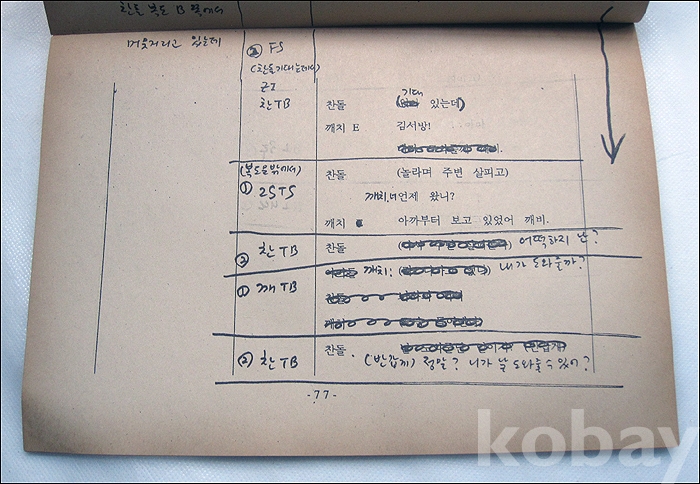 찬돌 복도 B 쪽에서
머뭇거리고 있는데
② FS
(찬돌 기대는데서)
ZI
찬TB 찬돌 기대 있는데)
깨치 E 김서방!
(복도 문밖에서) 찬돌 (놀라며 주변 살피고)
① 2STS 깨치. 너 언제 왔니?
깨치 아까부터 보고 있었어 깨비.
② 찬TB 찬돌 어떡하지 난?
① 깨TB 깨치: 내가 도와줄까?
② 찬TB 찬돌
(반갑게) 정말? 니가 날 도와줄 수 있어?
-77-
kobay